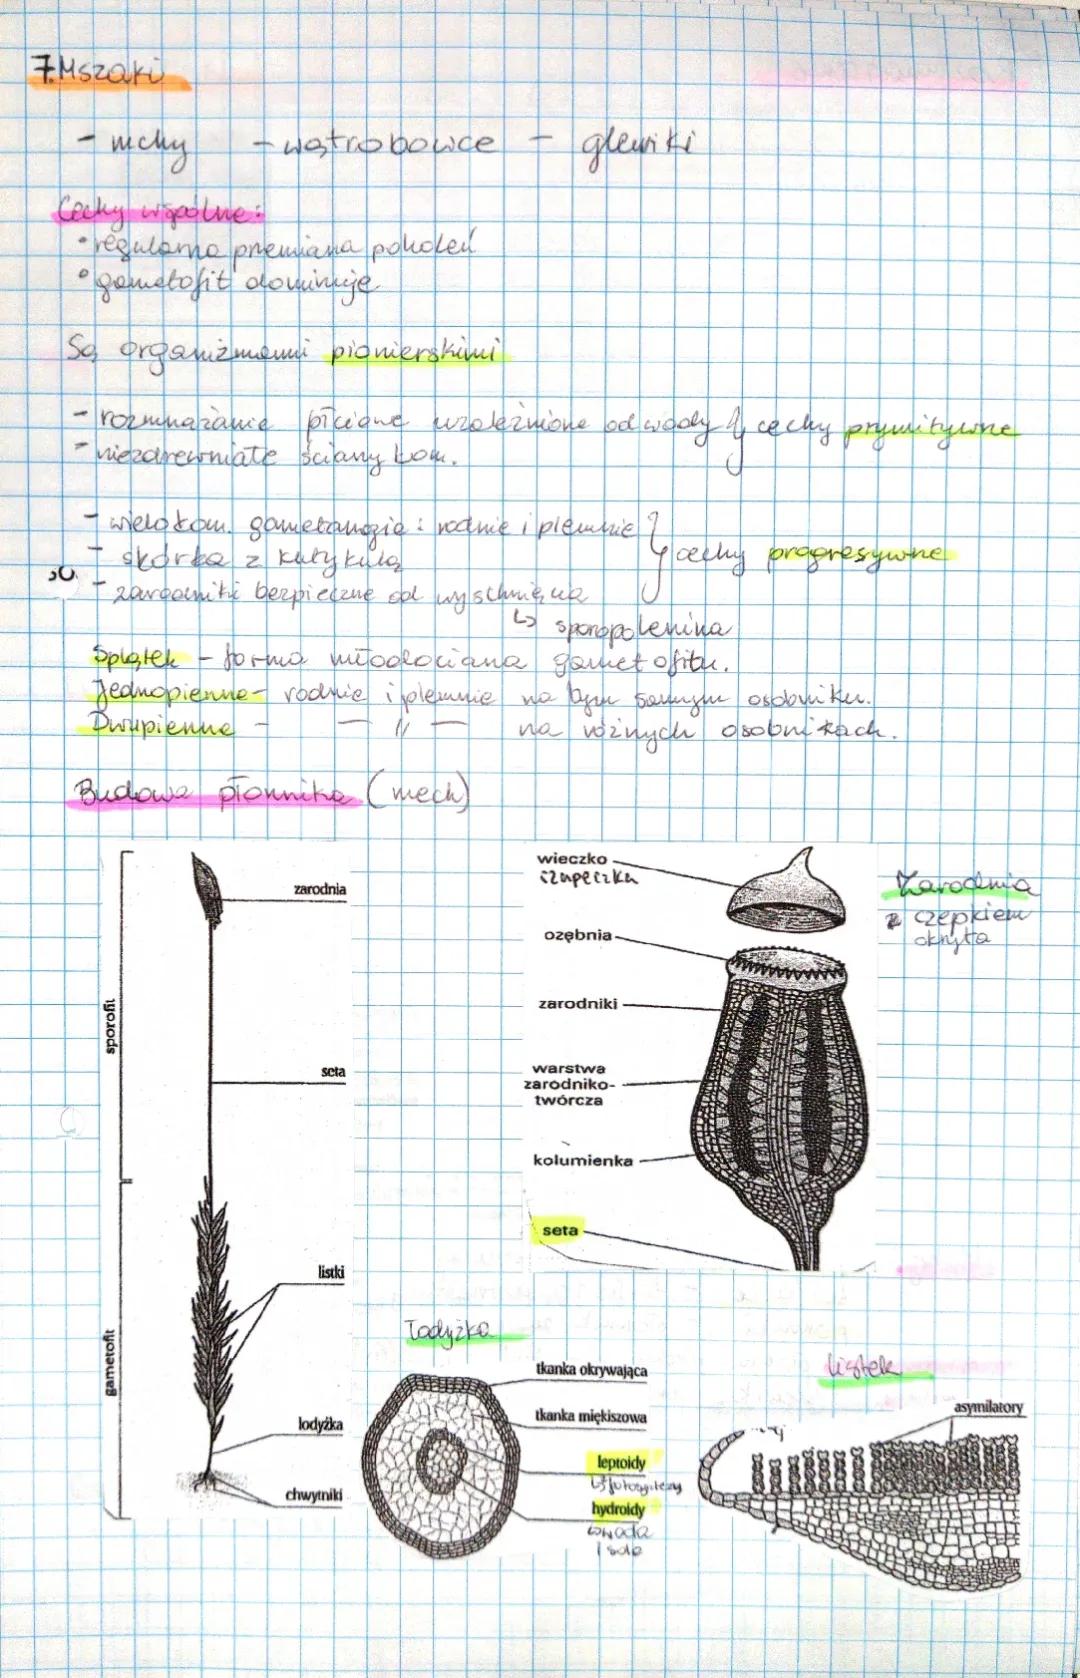 7. Mszaki
- mchy - wątrobowce - glewiki
Cechy wspólne:
• regularna przemiana pokoleń
• gametofit dominuje
Są organizmami pionierskimi
- rozmnażanie płciowe uzależnione od wody } cechy prymitywne
- niezdrewniałe ściany kom.
- wielokom. gametangia: rodnie i plemnie } cechy progresywne
- skórka z kutykulą
- zarodniki bezpieczne od wyschnięcia
↳ sporopolenina
Splątek - forma młodociana gametofitu.
Jednopienne - rodnie i plemnie na tym samym osobniku.
Dwupienne - — // — na różnych osobnikach.
Budowa płonnika (mech)
zarodnia
seta
listki
łodyżka
chwytniki
sporofit
gametofit
wieczko
czapeczka
ozębnia
zarodniki
warstwa
zarodniko-
twórcza
kolumienka
seta
Zarodnia
z czepkiem
okryta
Łodyżka
tkanka okrywająca
tkanka miękiszowa
leptoidy
hydroidy
↳ woda
i sole
listek
asymilatory